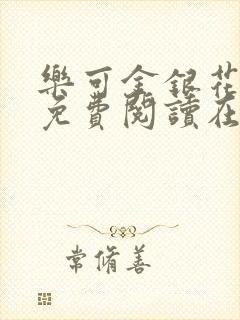 樂可金銀花
免費閱讀在
常脩善